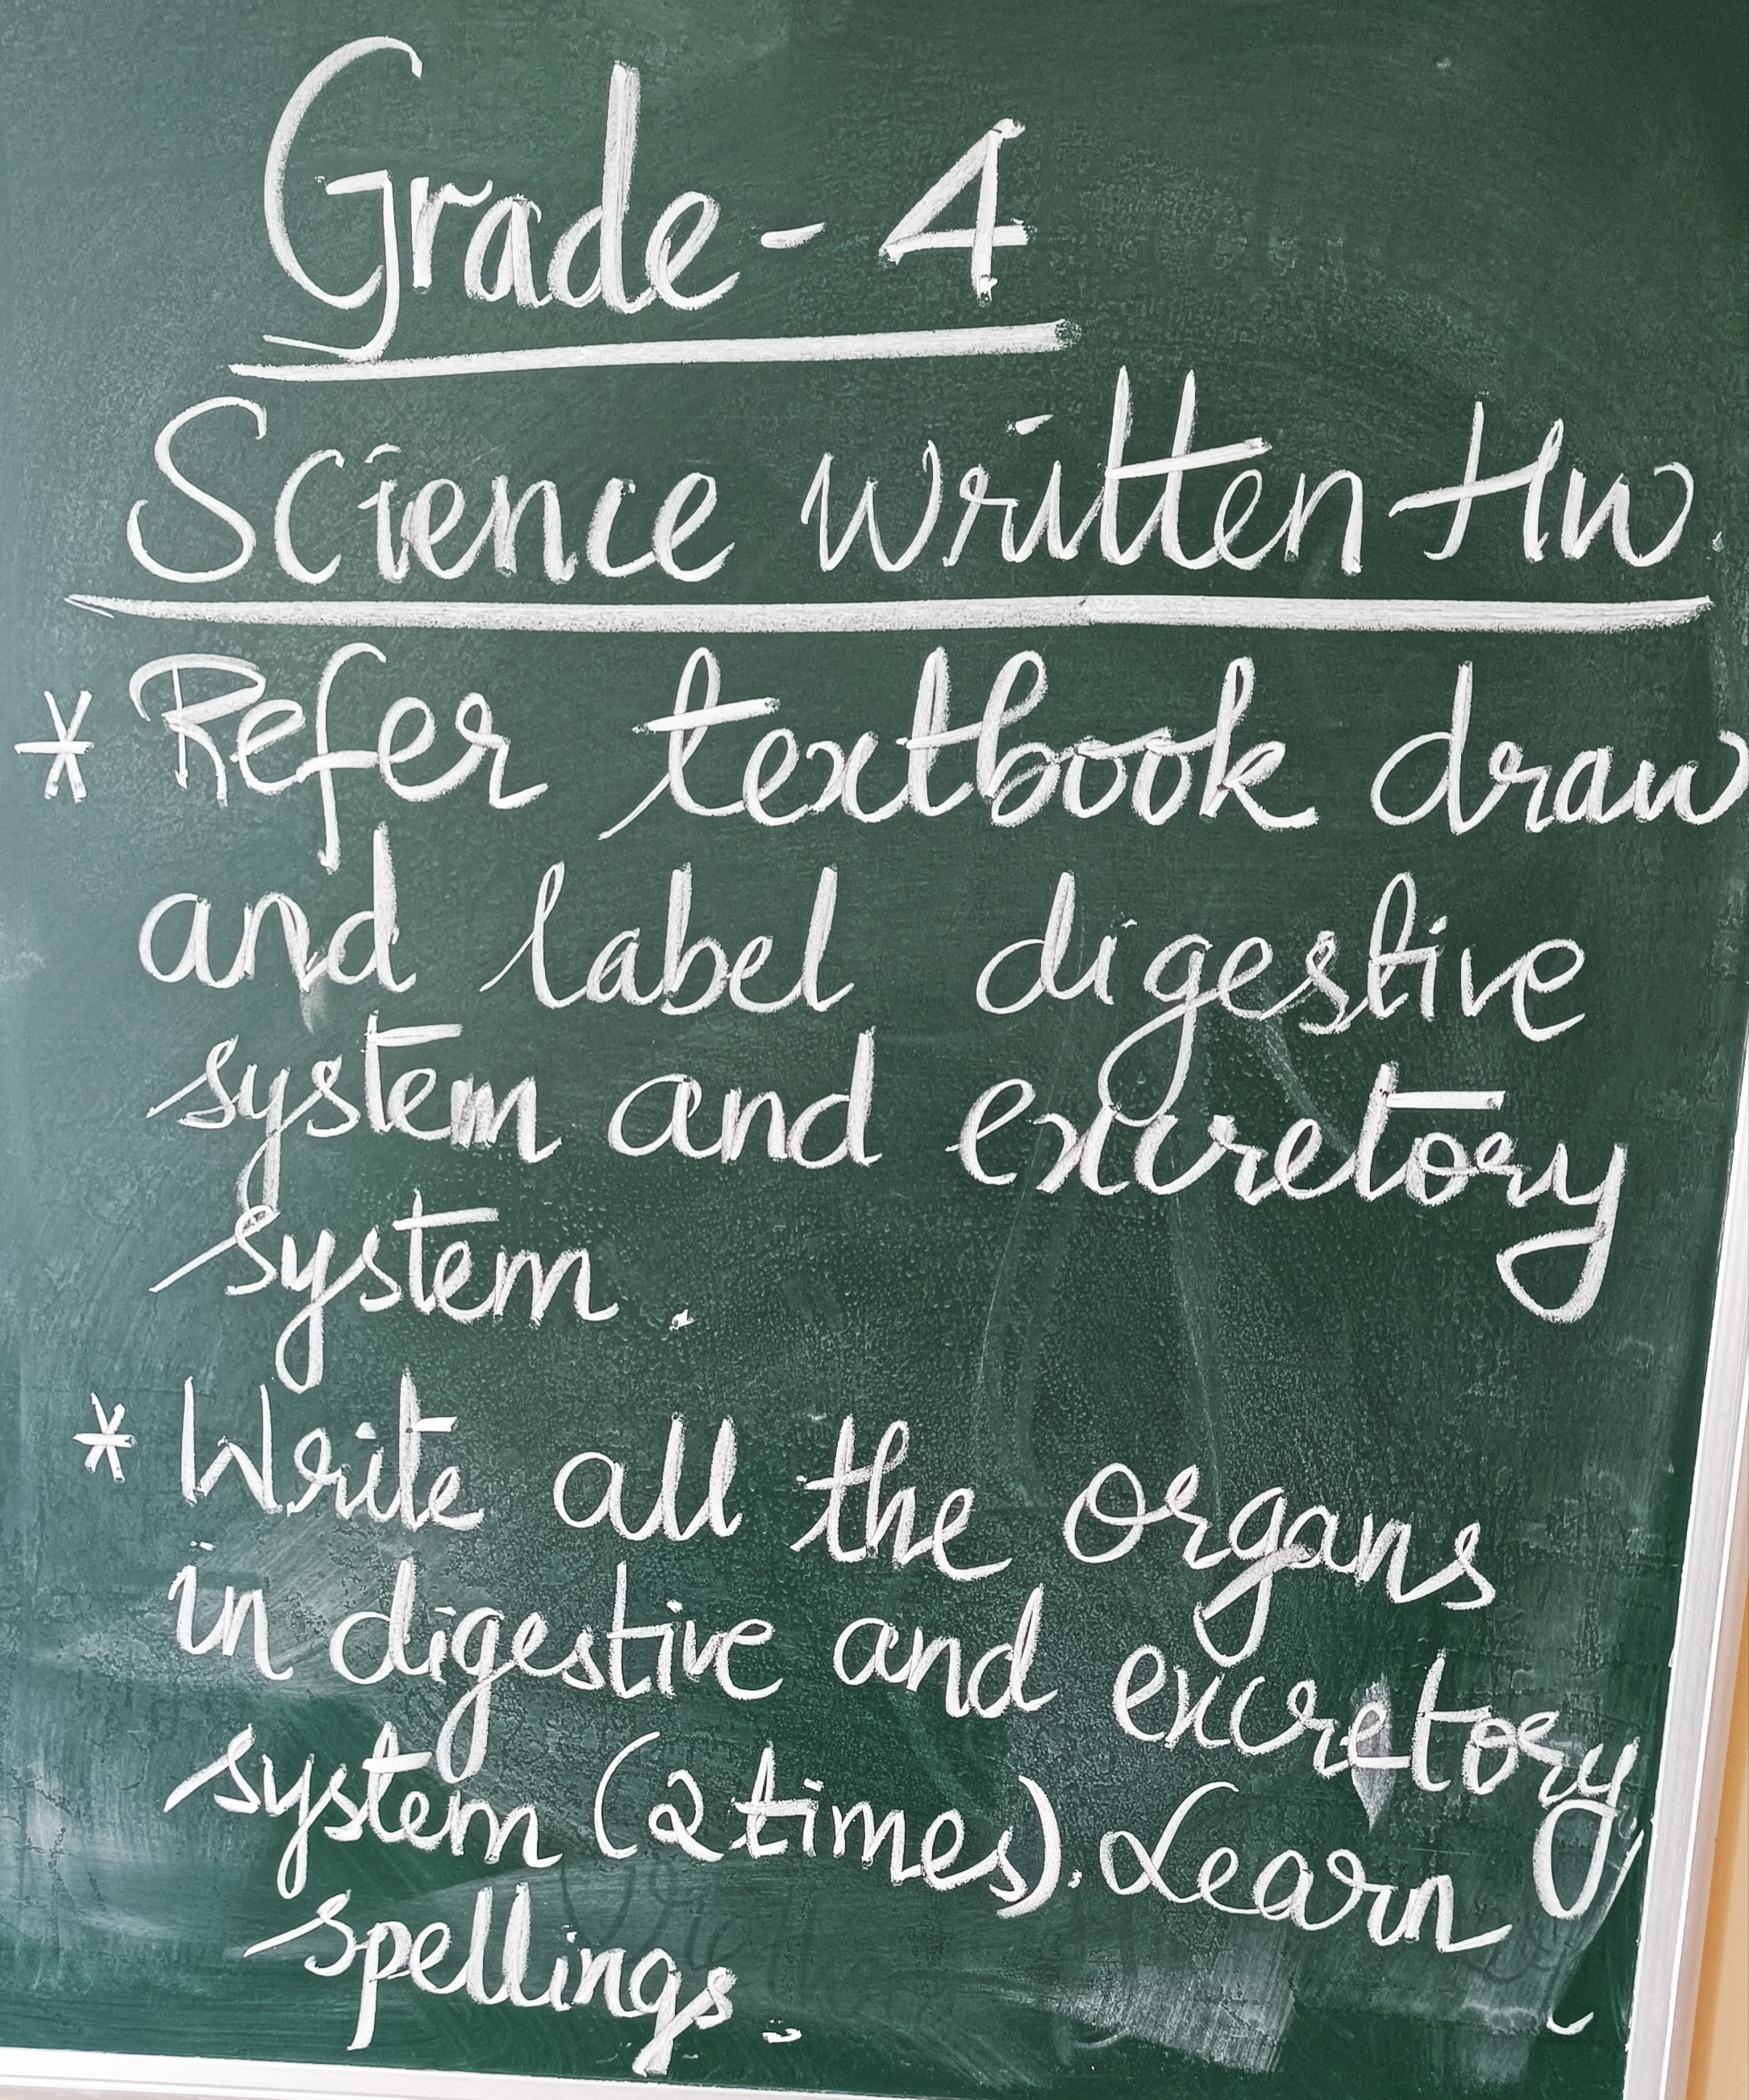 Grade - 4
Science written HW.
* Refer textbook draw
and label digestive
system and excretory
system.
* Write all the organs
in digestive and excretory
system (2 times). Learn
spellings.